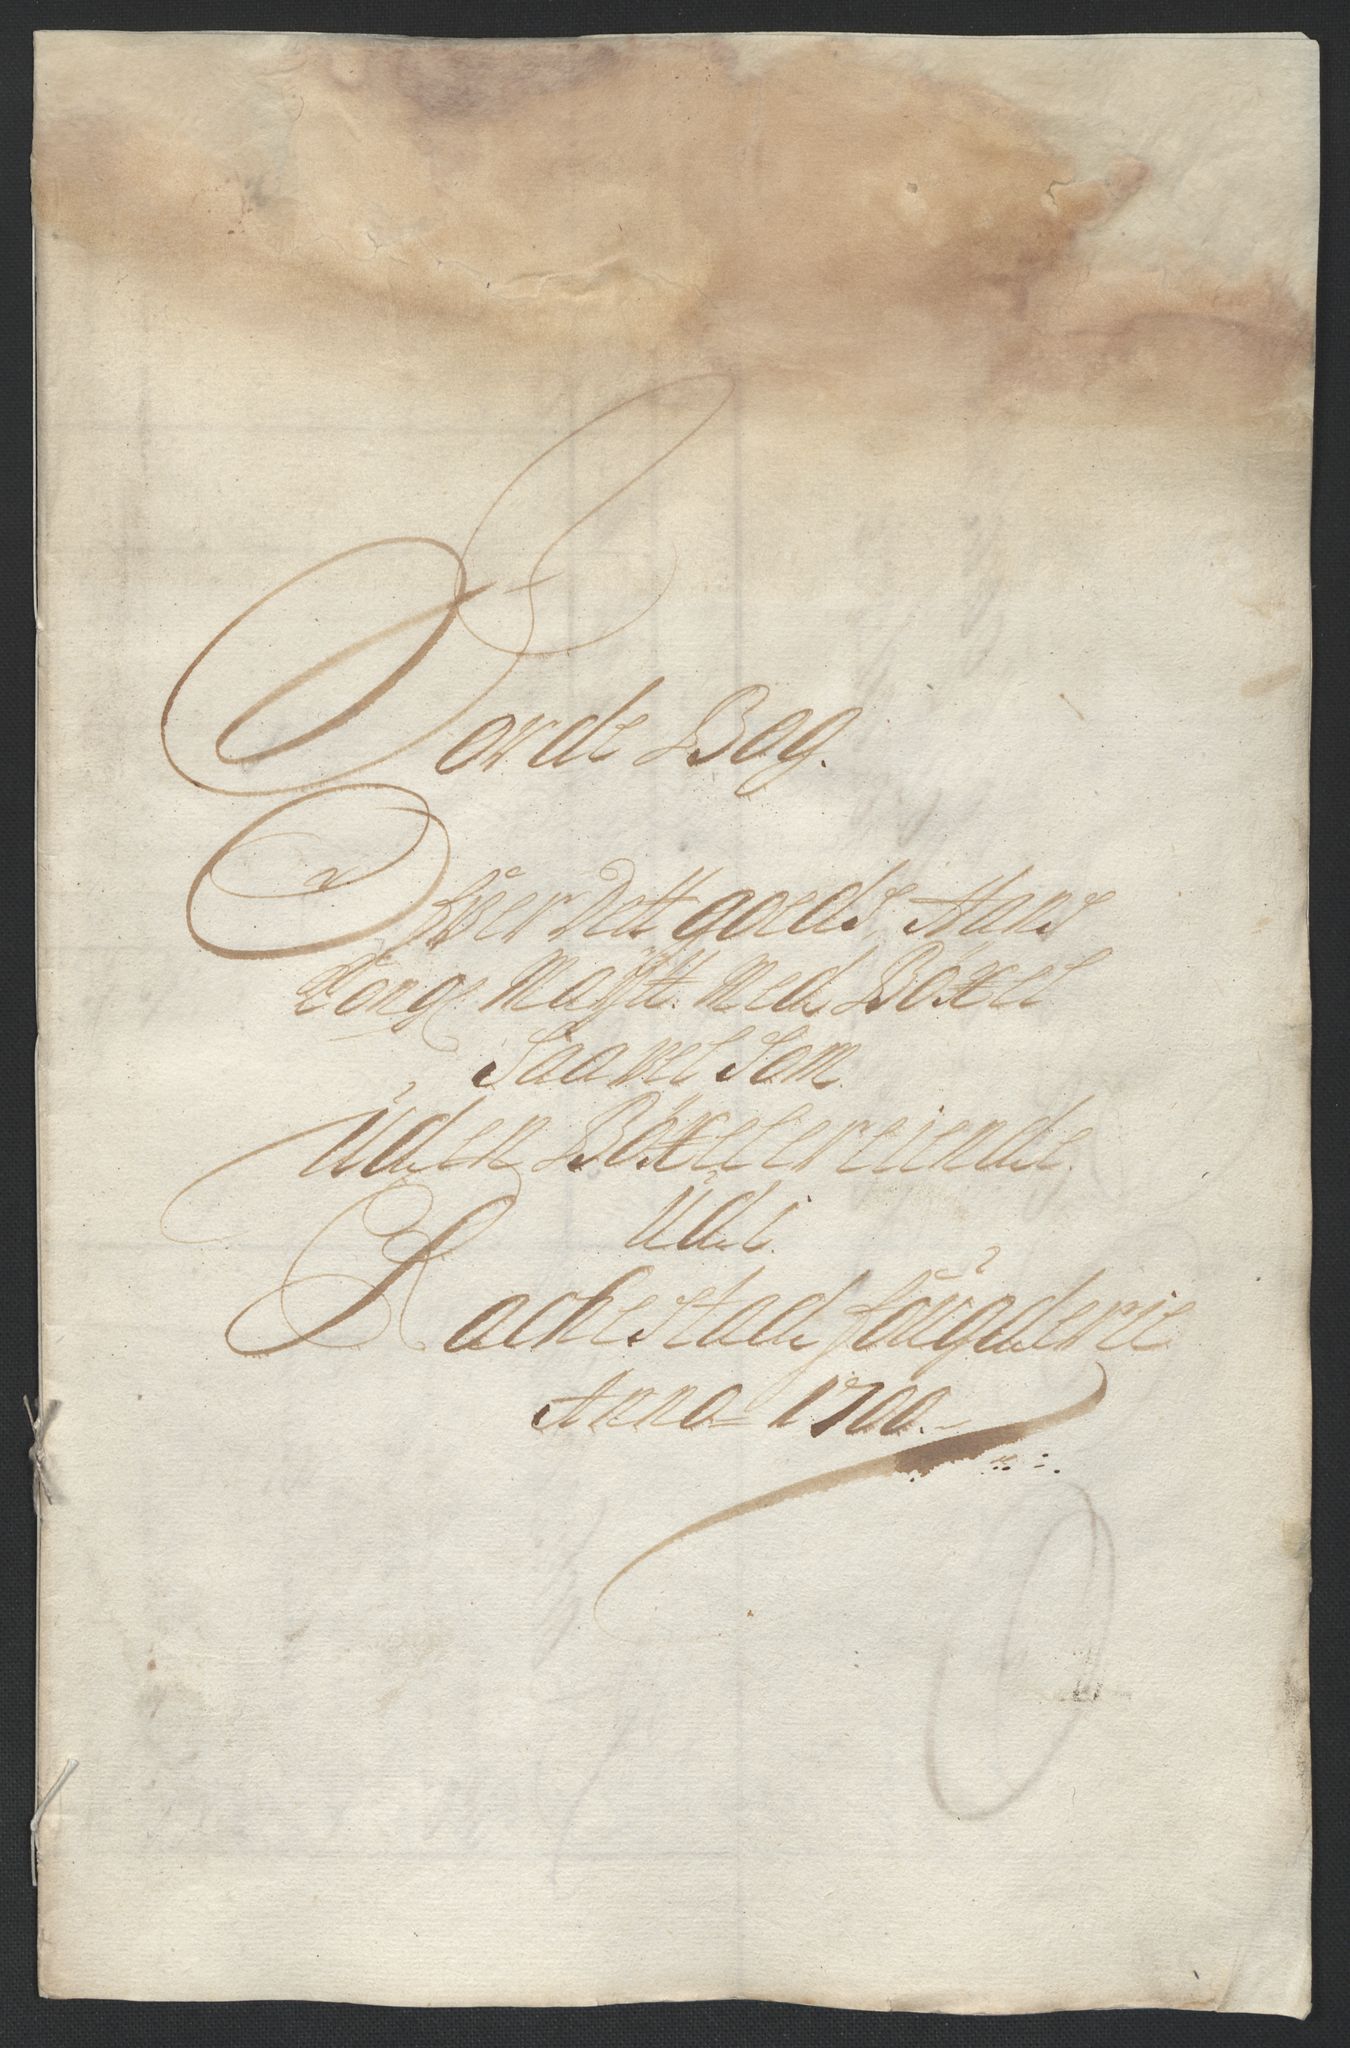 Jorde Bog.
Ofver Dett goeds, Hans
Kong: Maÿtt: Med Böxel
Saavel Som
Uden Böxel ereiende.
Udi
Rachestad fougderie
Anno 1700.